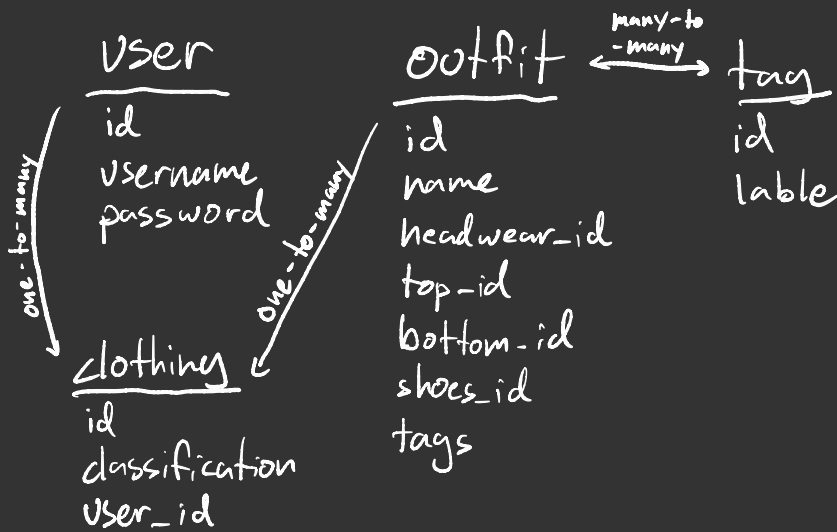 user
id
username
password
one-to-many
clothing
id
classification
user_id
outfit
id
name
headwear_id
top_id
bottom_id
shoes_id
tags
one-to-many
many-to
-many
tag
id
lable